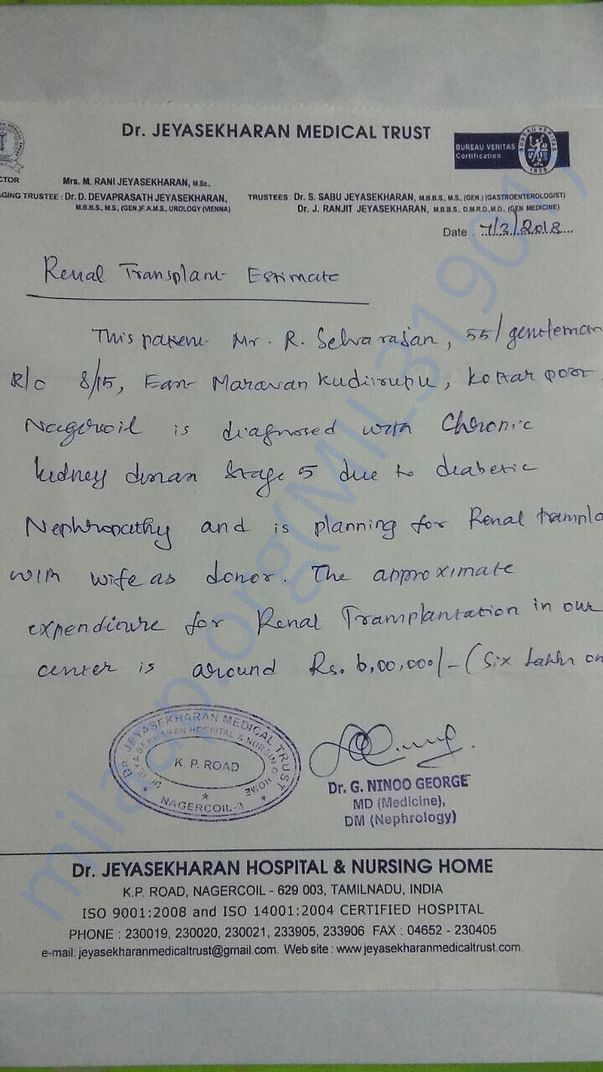 Dr. JEYASEKHARAN MEDICAL TRUST
BUREAU VERITAS
Certification
BUREAU VERITAS
1828
CTOR Mrs. M. RANI JEYASEKHARAN, M.Sc.
AGING TRUSTEE : Dr. D. DEVAPRASATH JEYASEKHARAN, TRUSTEES : Dr. S. SABU JEYASEKHARAN, M.B.B.S., M.S., (GEN.) (GASTROENTEROLOGIST)
M.B.B.S., M.S., (GEN.)F.A.M.S., UROLOGY (VIENNA) Dr. J. RANJIT JEYASEKHARAN, M.B.B.S., D.M.R.D., M.D., (GEN MEDICINE)
Date : 7/2/2018
Renal Transplant Estimate
This patient Mr. R. Selvarajan, 55/gentleman
R/o 8/15, East Maravan Kudiirupu, Kottar post
Nagercoil is diagnosed with Chronic
kidney disease Stage 5 due to diabetic
Nephropathy and is planning for Renal transpla
with wife as donor. The approximate
expenditure for Renal Transplantation in our
center is around Rs. 6,00,000/- (Six lakhs on
DR. JEYASEKHARAN MEDICAL TRUST
DR. JEYASEKHARAN HOSPITAL & NURSING HOME
K. P. ROAD
NAGERCOIL-3
Dr. G. NINOO GEORGE
MD (Medicine),
DM (Nephrology)
Dr. JEYASEKHARAN HOSPITAL & NURSING HOME
K.P. ROAD, NAGERCOIL - 629 003, TAMILNADU, INDIA
ISO 9001:2008 and ISO 14001:2004 CERTIFIED HOSPITAL
PHONE : 230019, 230020, 230021, 233905, 233906 FAX : 04652 - 230405
e-mail: jeyasekharanmedicaltrust@gmail.com. Web site : www.jeyasekharanmedicaltrust.com.
milaap.org(MIL31901)